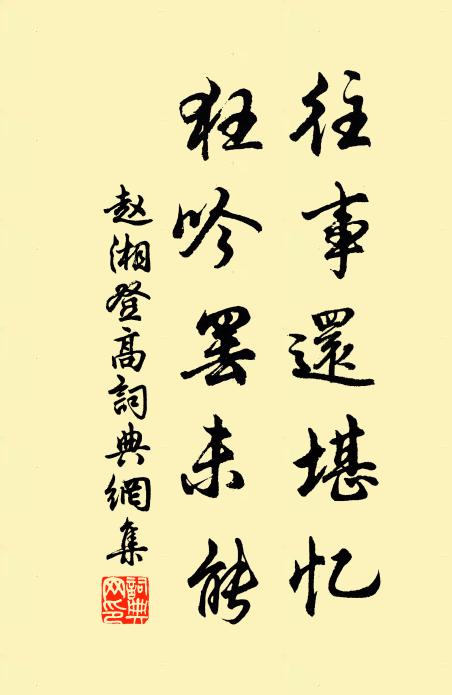 往事還堪忆
狂吟罢未能
赵湘登高詞典網集
詞典網印